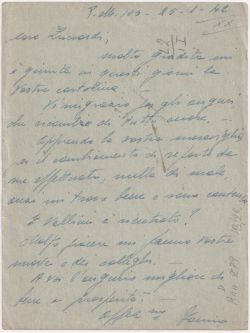 P.M. 103 - 25-1-42
XX
caro Zuccardi,
molto gradita mi
è giunta in questi giorni la
vostra cartolina -
Vi ringrazio per gli auguri
che ricambio di tutto cuore -
Apprendo la vostra meraviglia
per il cambiamento di reparto da
me effettuato, nulla di male,
anzi mi trovo bene e sono contento
E Vallini è rientrato?
molto piacere mi fanno vostre
e dei colleghi -
A voi l'augurio migliore di
bene e prosperità -